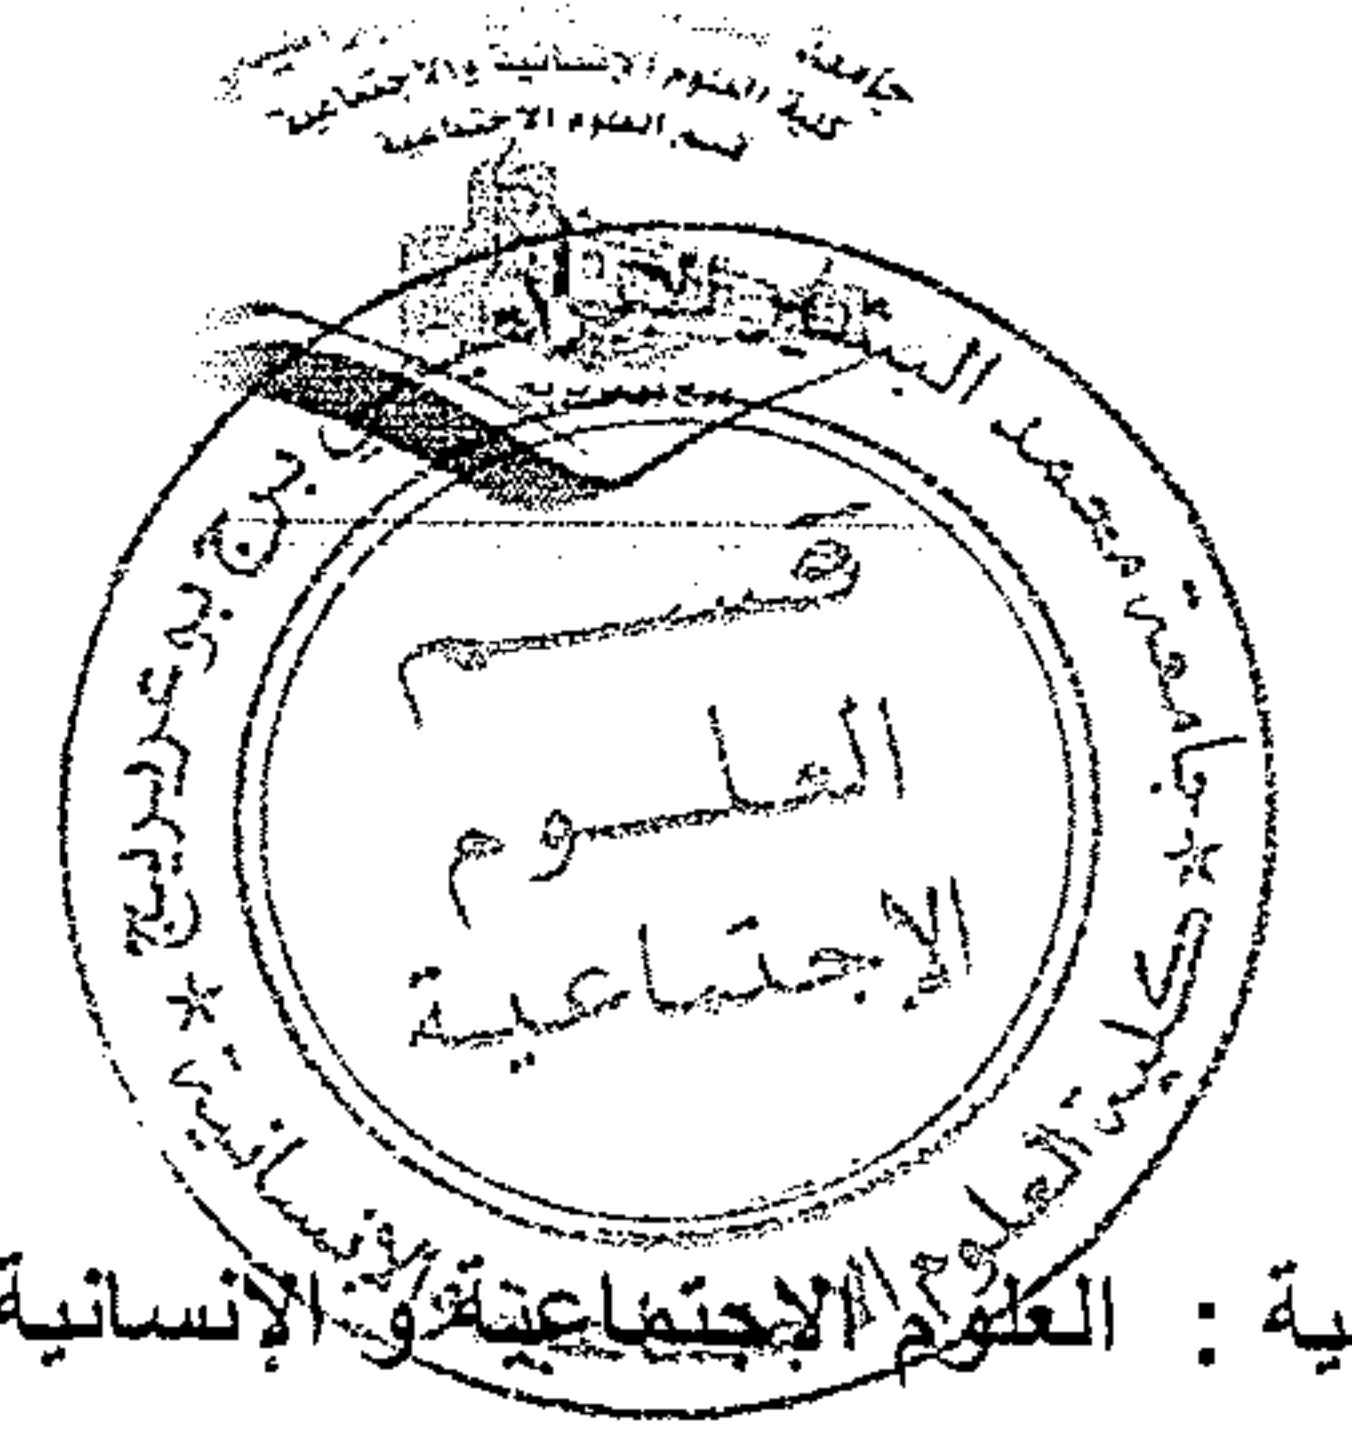 جامعة
كلية العلوم الإنسانية والاجتماعية
قسم العلوم الاجتماعية
جامعة محمد البشير الإبراهيمي برج بوعريريج
قسم
العلوم
الإجتماعية
كلية العلوم الاجتماعية والإنسانية
ية : العلوم الإجتماعية و الإنسانية